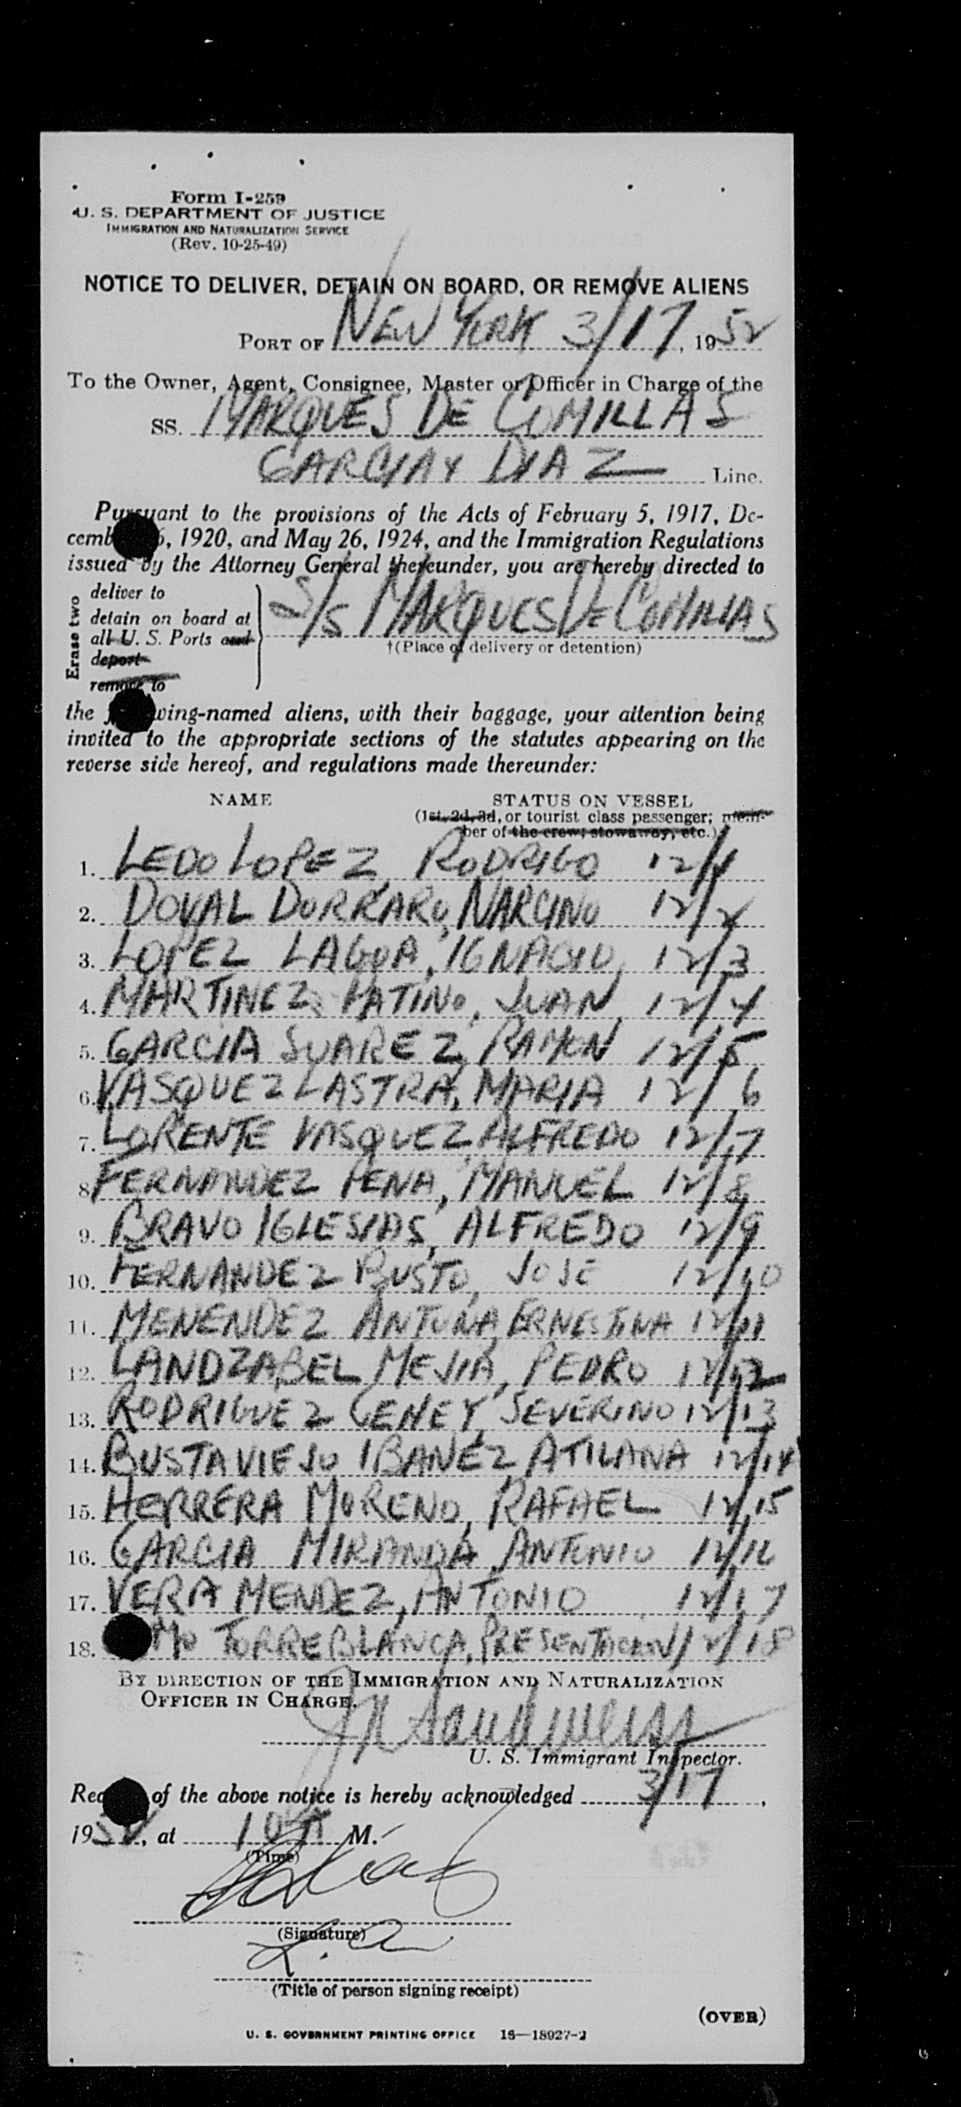 Form I-259
U. S. DEPARTMENT OF JUSTICE
IMMIGRATION AND NATURALIZATION SERVICE
(Rev. 10-25-49)
NOTICE TO DELIVER, DETAIN ON BOARD, OR REMOVE ALIENS
PORT OF NEW YORK 3/17, 1952
To the Owner, Agent, Consignee, Master or Officer in Charge of the
SS. MARQUES DE COMILLAS
GARCIA Y DIAZ Line.
Pursuant to the provisions of the Acts of February 5, 1917, De-
cemb 5, 1920, and May 26, 1924, and the Immigration Regulations
issued by the Attorney General thereunder, you are hereby directed to
Erase two
deliver to
detain on board at
all U. S. Ports and
deport
remove to
S/S MARQUES DE COMILLAS
†(Place of delivery or detention)
the following-named aliens, with their baggage, your attention being
invited to the appropriate sections of the statutes appearing on the
reverse side hereof, and regulations made thereunder:
NAME STATUS ON VESSEL
(1st, 2d, 3d, or tourist class passenger; mem-
ber of the crew; stowaway, etc.)
1. LEDO LOPEZ, RODRIGO 12/1
2. DOVAL DORRARO, NARCINO 12/2
3. LOPEZ LAGOA, IGNACIO, 12/3
4. MARTINEZ PATINO, JUAN, 12/4
5. GARCIA SUAREZ, RAMON 12/5
6. VASQUEZ LASTRA, MARIA 12/6
7. LORENTE VASQUEZ, ALFREDO 12/7
8. FERNANDEZ PENA, MANUEL 12/8
9. BRAVO IGLESIAS, ALFREDO 12/9
10. FERNANDEZ BUSTO, JOSE 12/10
11. MENENDEZ ANTUNA, ERNESTINA 12/11
12. LANDZABEL MEJIA, PEDRO 12/12
13. RODRIGUEZ CENEY, SEVERINO 12/13
14. BUSTAVIEJO IBANEZ ATILANA 12/14
15. HERRERA MORENO, RAFAEL 12/15
16. GARCIA MIRANDA, ANTONIO 12/16
17. VERA MENDEZ, ANTONIO 12/17
18. MO TORREBLANCA, PRESENTACION 12/18
BY DIRECTION OF THE IMMIGRATION AND NATURALIZATION
OFFICER IN CHARGE.
U. S. Immigrant Inspector.
Rec of the above notice is hereby acknowledged 3/17,
1952, at 10 A M.
(Time)
(Signature)
(Title of person signing receipt)
(OVER)
U. S. GOVERNMENT PRINTING OFFICE 16—18927-2